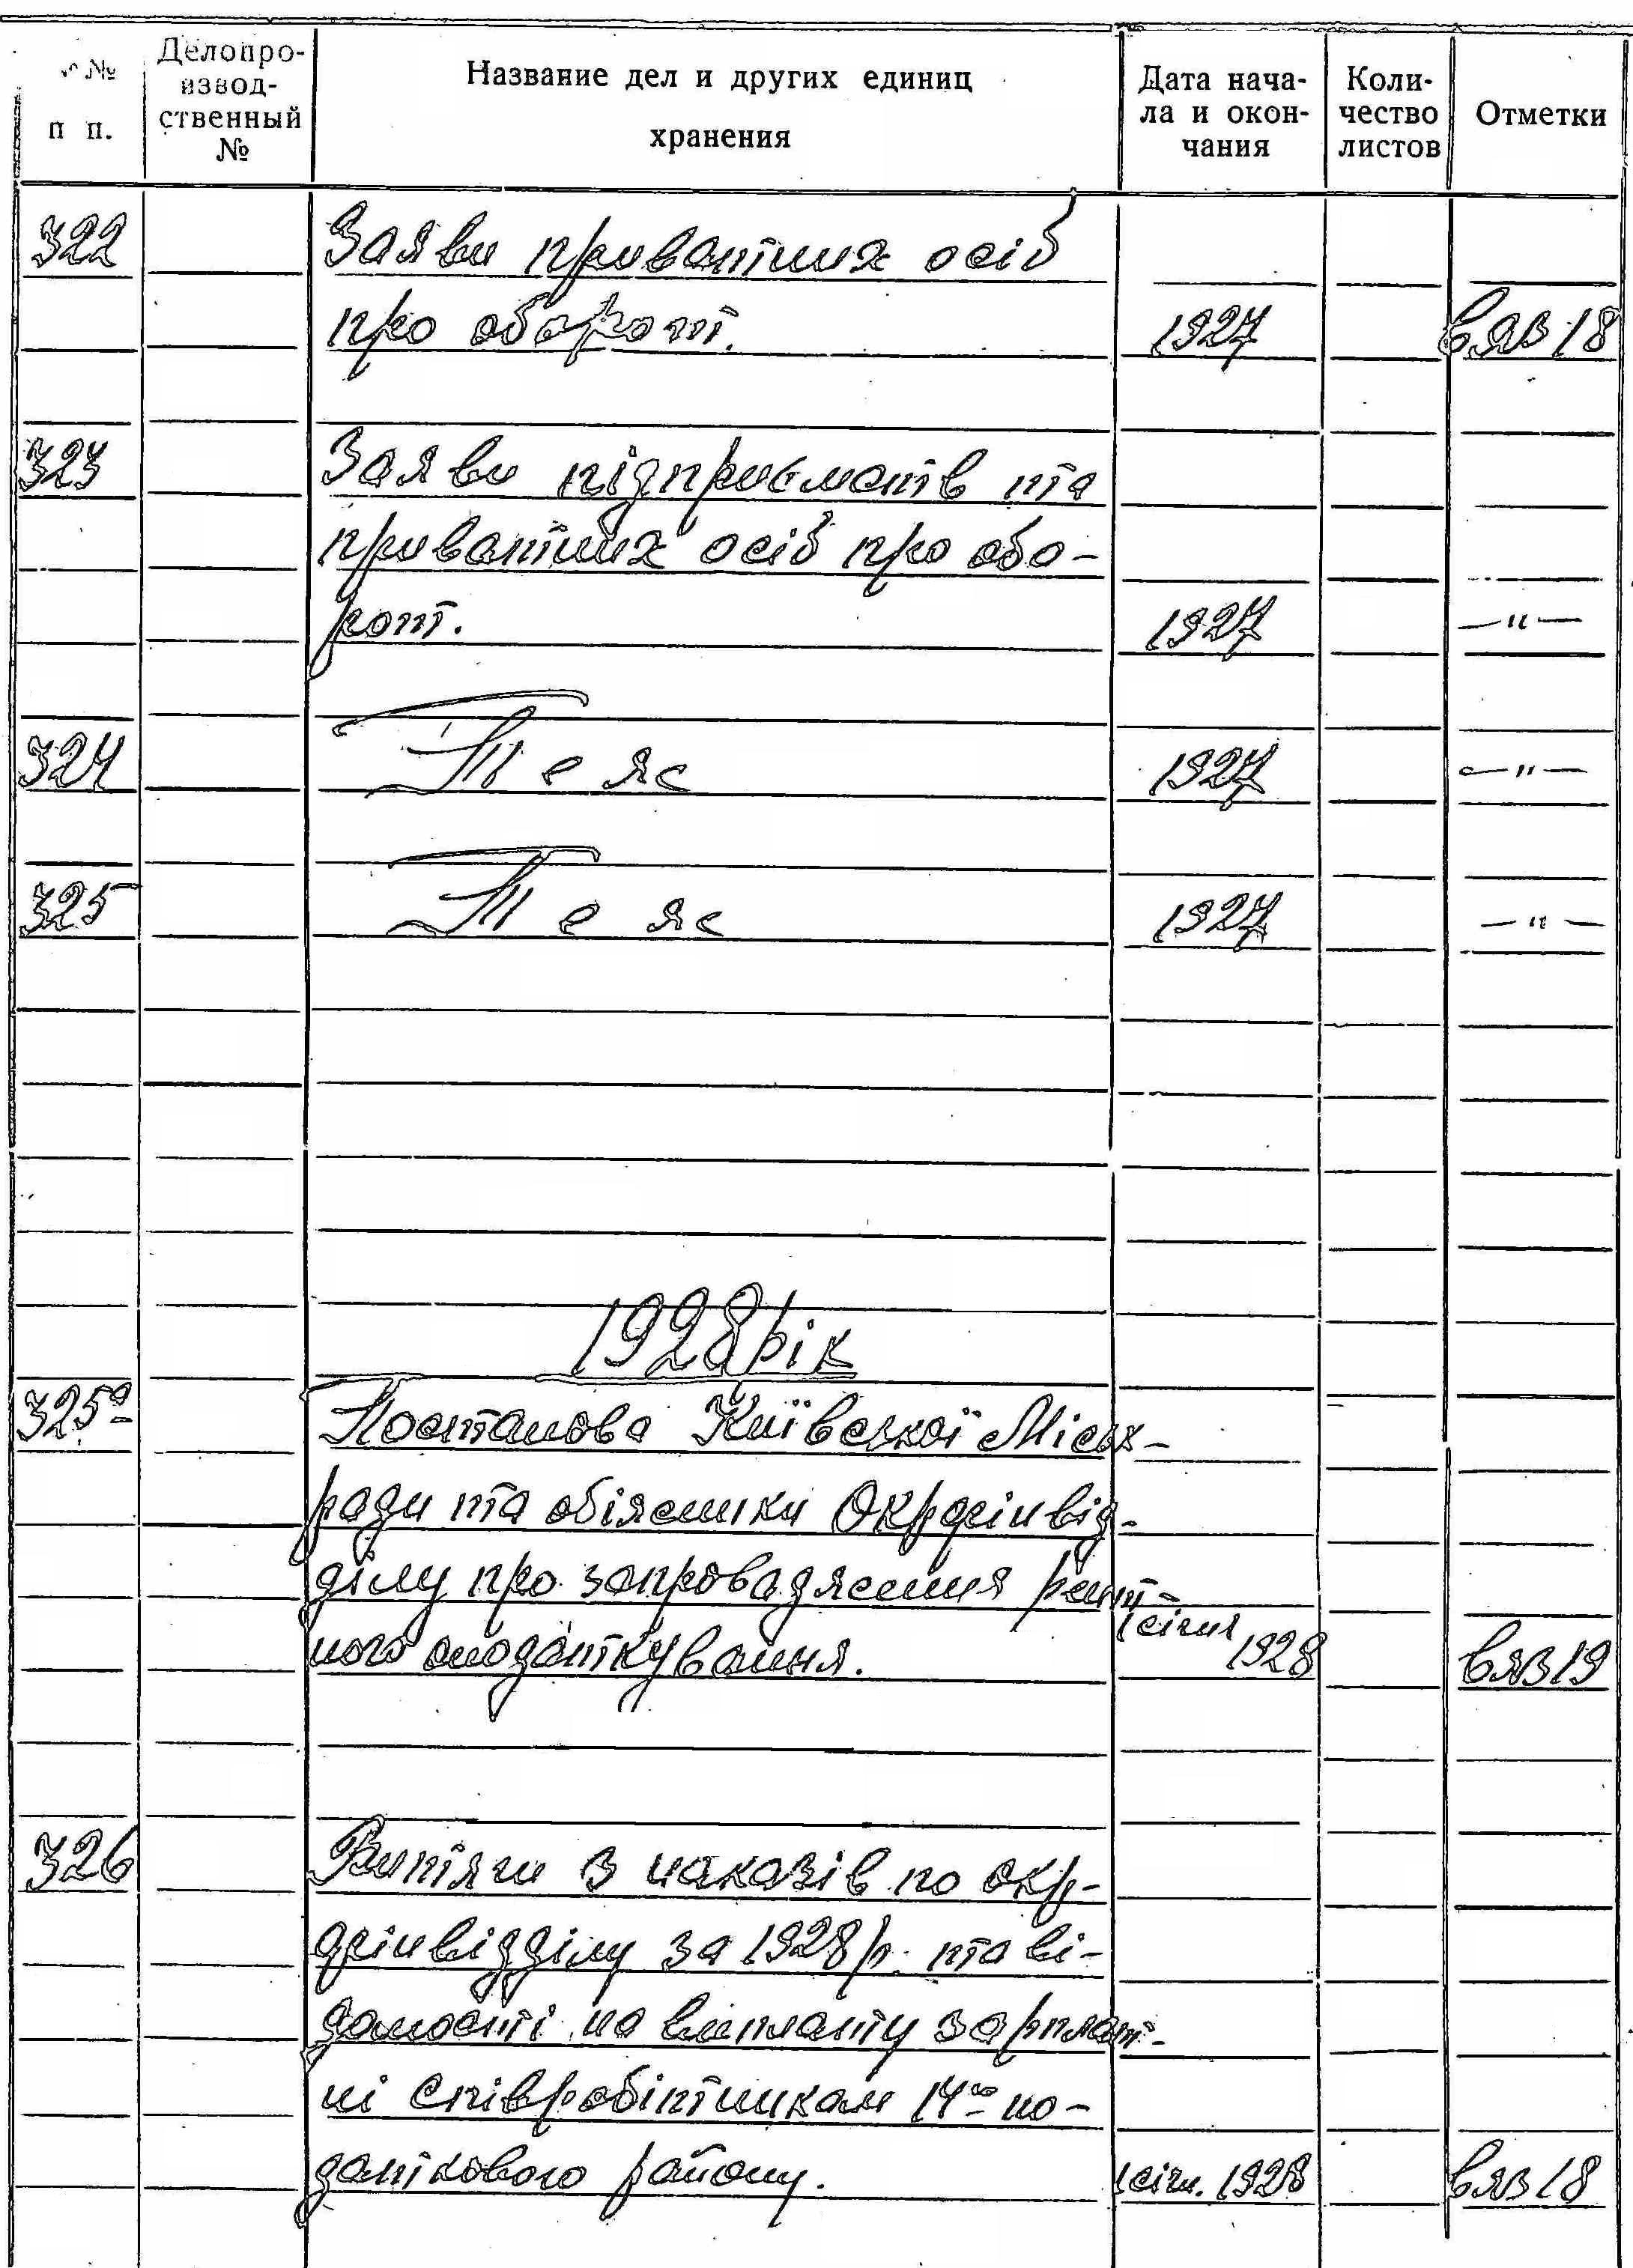 № п п.
Делопро-
извод-
ственный
№
Название дел и других единиц
хранения
Дата нача-
ла и окон-
чания
Коли-
чество
листов
Отметки
322 Заяви приватних осіб
про оборот. 1927 вяз 18
323 Заяви підприємств та
приватних осіб про обо-
рот. 1927 —"—
324 Теж 1927 —"—
325 Теж 1927 —"—
1928 рік
325а Постанова Київської Міськ-
ради та обіжники Окрфінвід-
ділу про запровадження рент-
ного оподаткування. 1 січня 1928 вяз 19
326 Витяги з наказів по окр-
фінвідділу за 1928 р. та ві-
домості на виплату зарплат-
ні співробітникам 14го по-
даткового району. 1 січн. 1928 вяз 18